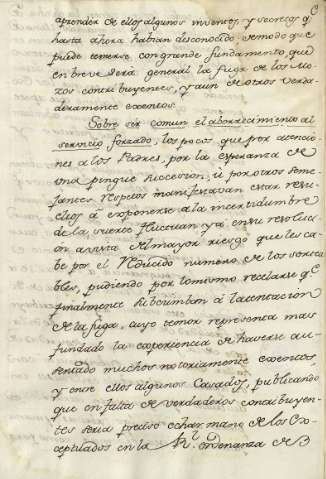 aprender de ellos algunos inventos, y secretos q.e
hasta ahora habian desconocido de modo que
puede temerse con grande fundamento, que
en breve será general la fuga de los Mo-
zos contribuyentes, y aun de otros verda-
deramente exêntos.
Sobre ser comun el aborrecimiento al
servicio forzado, los pocos que por atencio-
nes a los Padres, por la esperanza de
una pingue succesion, ú por otros seme-
jantes respetos manifestavan estar resu-
eltos á exponerse à la incertidumbre
de la suerte fluctuan ya en su resoluci-
on a vista del mayor riesgo que les ca-
be por el reducido numero de los sortea-
bles, pudiendo por lo mismo recelarse q.e
finalmente sucumban à la tentacion
de la fuga, cuyo temor representa mas
fundado la experiencia de haverse au-
sentado muchos notoriamente exêntos,
y entre ellos algunos Casados, publicando
que en falta de verdaderos contribuyen-
tes seria preciso echar mano de los Ex-
ceptuados en la R.l ordenanza de